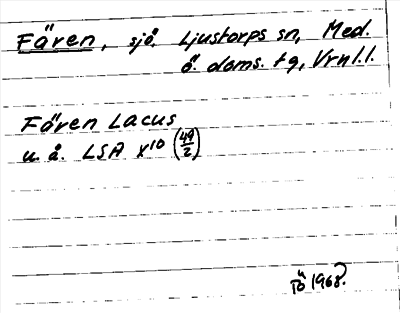 Fären, sjö. Ljustorps sn, Med.
ö. doms. tg, Vrnl.l.
Fären Lacus
u. å. LSA X¹⁰ (49/2)
TÖ 1968.